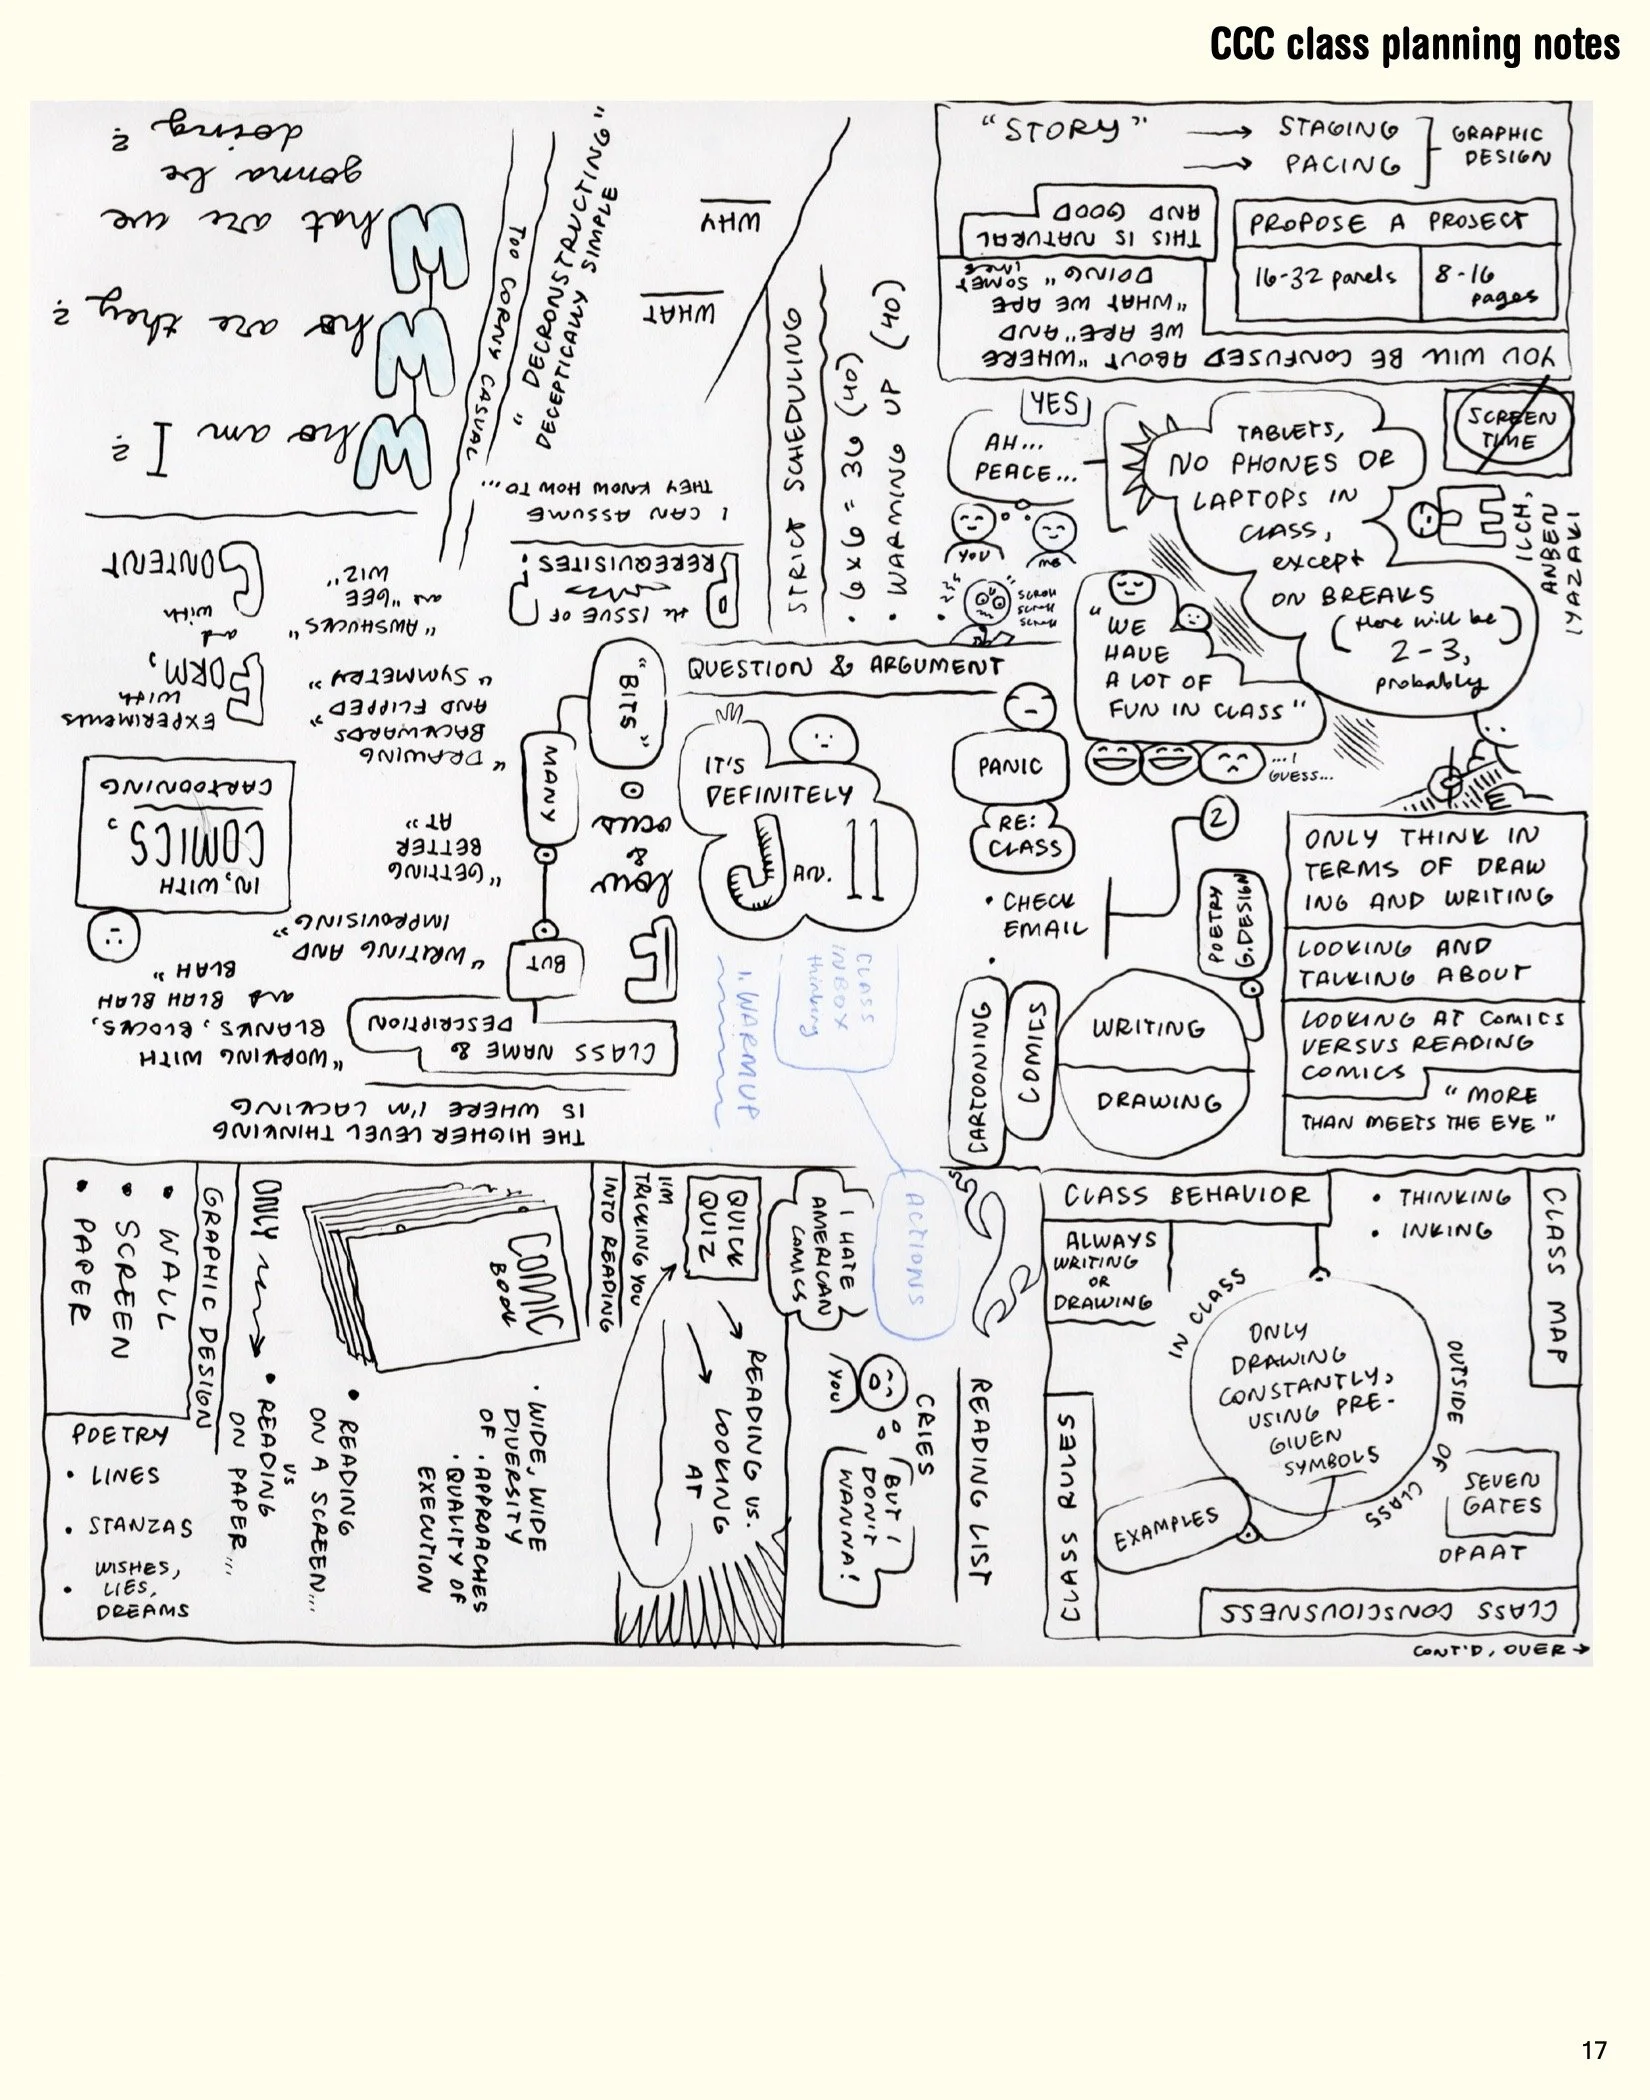 CCC class planning notes
"STORY" → STAGING
→ PACING
GRAPHIC
DESIGN
PROPOSE A PROJECT
16-32 panels
8-16
pages
YOU WILL BE CONFUSED ABOUT "WHERE
WE ARE" AND
"WHAT WE ARE
DOING" SOMET
IMES
THIS IS NATURAL
AND GOOD
Who am I?
Who are they?
What are we
gonna be
doing?
TOO CORNY CASUAL
"DECRONSTRUCTING"
DECEPTICALLY SIMPLE
WHY
WHAT
STRICT SCHEDULING
• 6x6 = 36 (40)
• WARMING UP (40)
•
the ISSUE OF
PREREQUISITES:
I CAN ASSUME
THEY KNOW HOW TO...
YES
AH...
PEACE...
YOU
ME
SCROLL
SCROLL
SCROLL
TABLETS,
NO PHONES OR
LAPTOPS IN
CLASS,
except
ON BREAKS
(there will be)
2-3,
probably
SCREEN
TIME
ILCH,
ANBEN
IYAZAKI
"WE
HAVE
A LOT OF
FUN IN CLASS"
...I
GUESS...
QUESTION & ARGUMENT
PANIC
RE:
CLASS
• CHECK
EMAIL
•
2
POETRY
G.DESIGN
WRITING
DRAWING
COMICS
CARTOONING
ONLY THINK IN
TERMS OF DRAW
ING AND WRITING
LOOKING AND
TALKING ABOUT
LOOKING AT COMICS
VERSUS READING
COMICS
"MORE
THAN MEETS THE EYE"
IT'S
DEFINITELY
JAN. 11
THE HIGHER LEVEL THINKING
IS WHERE I'M LACKING
CLASS NAME &
DESCRIPTION
BUT
MANY
"BITS"
Flow
&
ocus
"WORKING WITH
BLANKS, BLOCKS,
and BLAH BLAH
BLAH"
"WRITING AND
IMPROVISING"
"GETTING
BETTER
AT"
"DRAWING
BACKWARDS
AND FLIPPED"
"SYMMETRY"
"AWSHUCKS"
and "GEE
WIZ"
IN, WITH,
COMICS,
CARTOONING
EXPERIMENTS
WITH
FORM,
and
with
CONTENT
1. WARMUP
CLASS
INBOX
thinking
ACTIONS
• WALL
• SCREEN
• PAPER
GRAPHIC DESIGN
POETRY
• LINES
• STANZAS
• WISHES,
LIES,
DREAMS
ONLY →
• READING
ON PAPER...
VS
• READING
ON A SCREEN...
COMIC
BOOK
• WIDE, WIDE
DIVERSITY
OF • APPROACHES
• QUALITY OF
EXECUTION
I'M
TRICKING YOU
INTO READING
QUICK
QUIZ
→ READING VS.
→ LOOKING
AT
I HATE
AMERICAN
COMICS
YOU
CRIES
BUT I
DON'T
WANNA!
READING LIST
CLASS BEHAVIOR
ALWAYS
WRITING
OR
DRAWING
• THINKING
• INKING
CLASS MAP
IN CLASS
ONLY
DRAWING
CONSTANTLY,
USING PRE-
GIVEN
SYMBOLS
OUTSIDE OF CLASS
EXAMPLES
SEVEN
GATES
OPAAT
CLASS RULES
CLASS CONSCIOUSNESS
CONT'D, OVER →
17